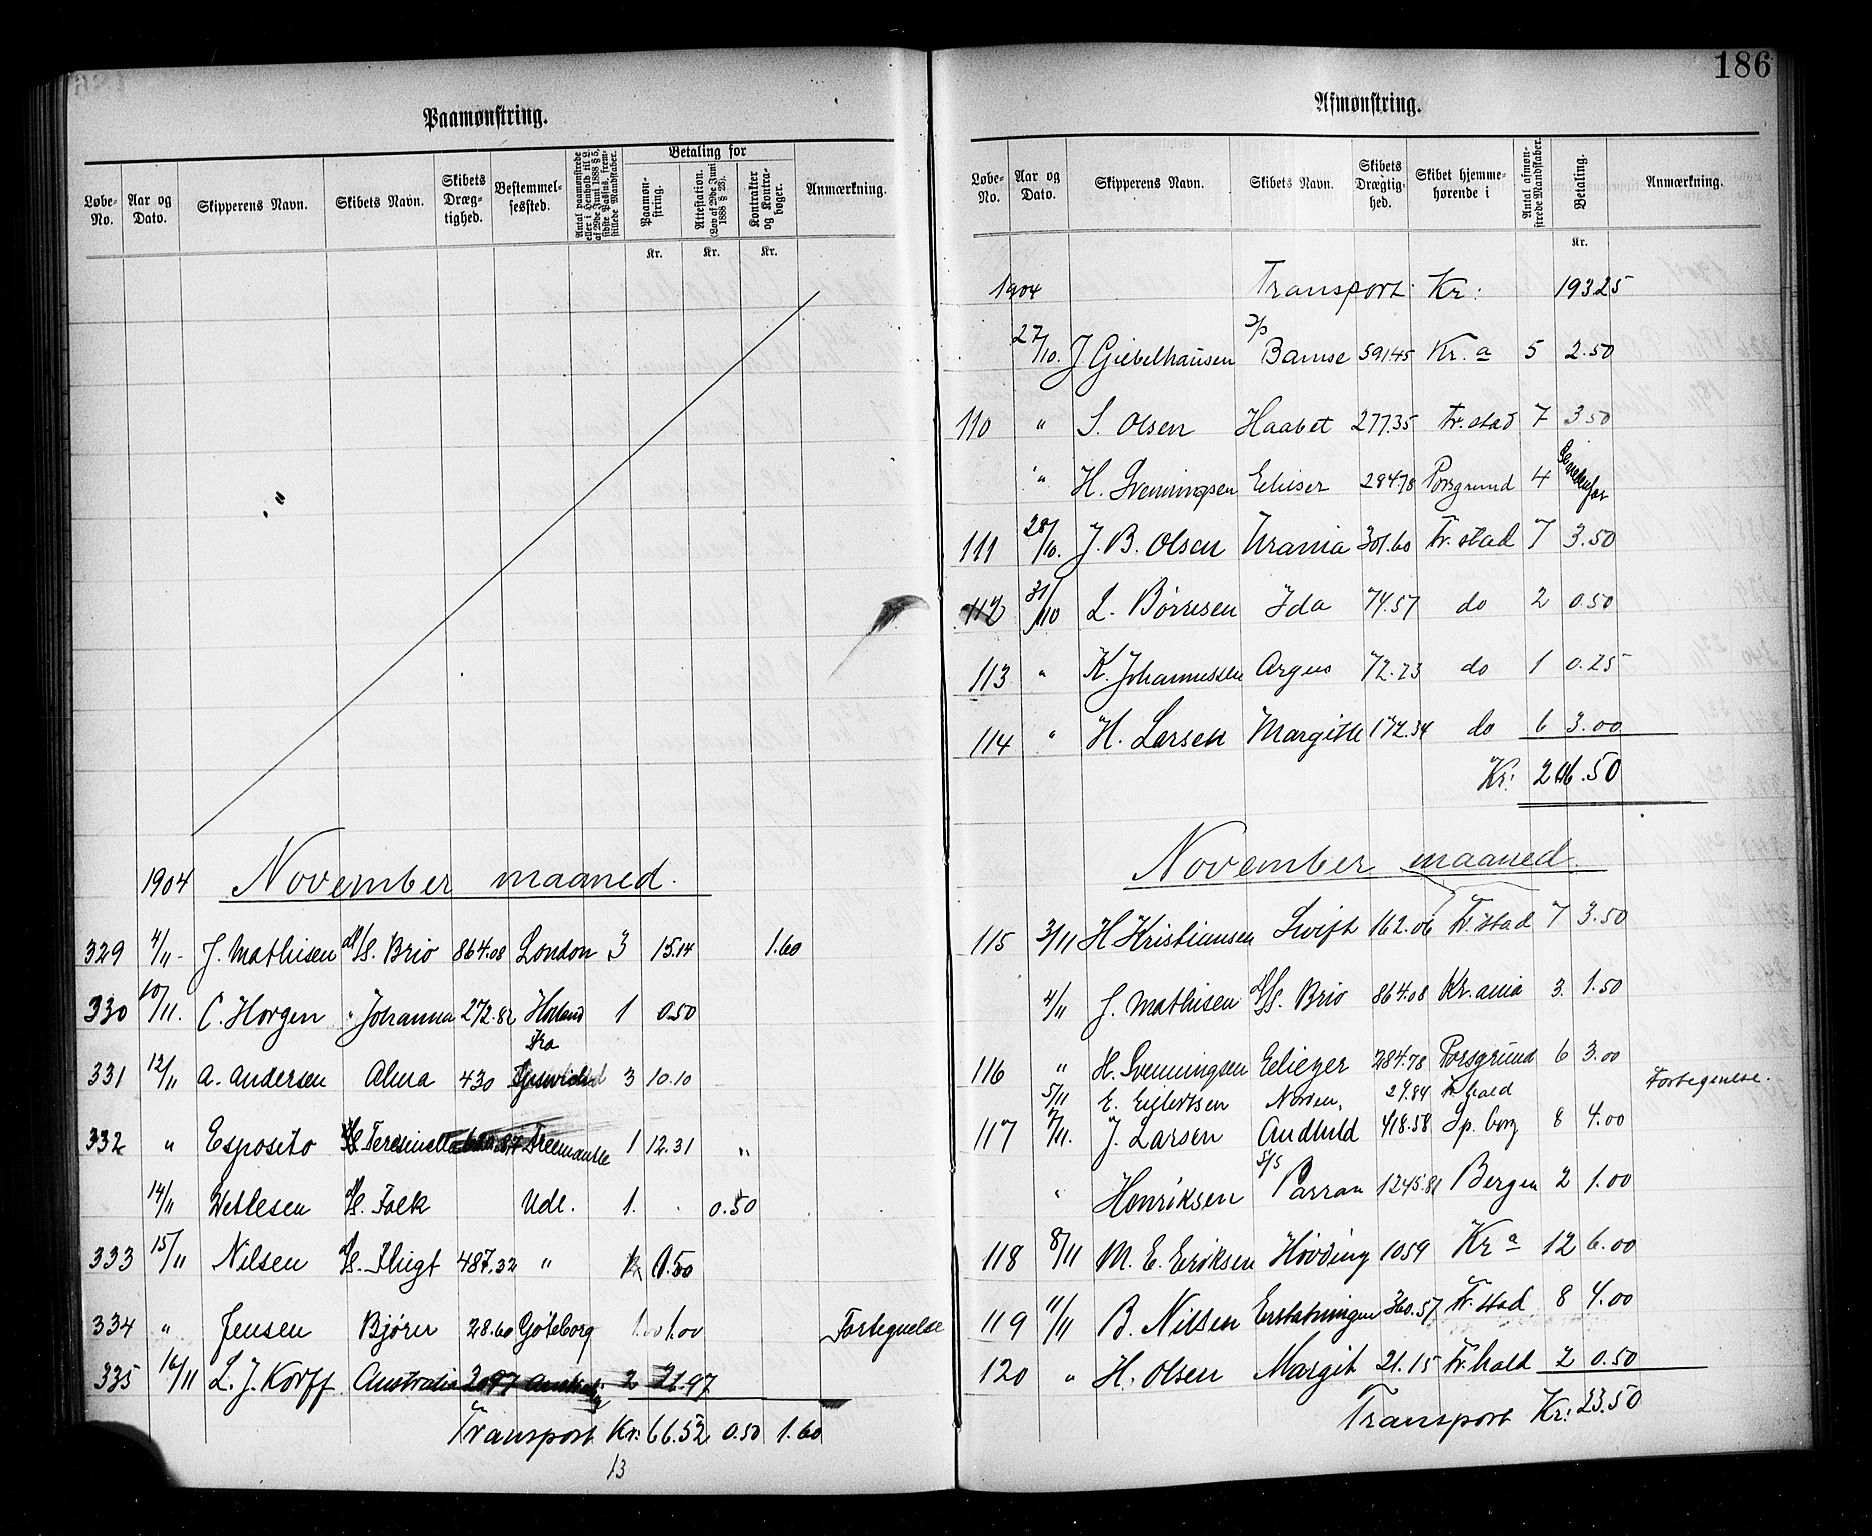 186
Paamønstring.
Løbe-No. Aar og Dato. Skipperens Navn. Skibets Navn. Skibets Dræg-tighed. Bestemmel-sessted. Betaling for Paamøn-string. Attestation. (Lov af 29de Juni 1888 § 23). Kontrakter og Kontra-bøger. Anmærkning.
Kr. Kr. Kr.
"
1904 November maaned.
329 4/11 J. Mathisen S. Brio 864.08 London 3 15.14 1.60
330 10/11. C. Horgen " Johanna 272.82 1 0.50
331 12/11 A. Andersen Alma 430 3 10.10
332 " Esposito Teresinella Freemantle 1 12.31 "
14/11 Wettesen S. Falk Udl. 1. 0.50
333 15/11 Nilsen S. Flugt 487.32 "
334 " Jensen Bjørn 28.60 Göteborg 1.00 1.00 Fortegnelse
335 16/11 L. J. Korff Australia 2097 2 21.97
Transport Kr: 66.52 0.50 1.60
13
Afmønstring.
Løbe-No. Aar og Dato. Skipperens Navn. Skibets Navn. Skibets Drægtig-hed. Skibet hjemme-hørende i Antal afmøn-strede Mandskaber. Betaling. Anmærkning.
Kr.
1904 Transport Kr: 193 25
27/10. J Giebelhausen Bamse 591.45 Kr.a 5 2.50
110 " S. Olsen Haabet 277.35 Fr.stad 7 3.50
" H. Svenningsen Elieser 284.78 Porsgrund 4
111 28/10. J. B. Olsen Urania 301.60 Fr.stad 7 3.50
112 31/10 L. Børresen Ida 74.57 do 2 0.50
113 " K. Johannessen Argus 72.23 do 1 0.25
114 " H. Larsen Margithe 172.34 do 6 3.00
Kr: 206.50
November maaned.
115 3/11 H Kristiansen Swift 162.06 Fr.stad 7 3.50
4/11 J. Mathisen S. Brio 864.08 Kr.ania 3. 1.50
116 " H. Svenningsen Eliezer 284.78 Porsgrund 6 3.00
5/11 E. Eilertsen Norden, 29.84 Fr.hald Fortegnelse.
117 7/11. J. Larsen Audhild 418.58 Sp.borg 8 4.00
" Henriksen S/S Parran 1245.81 Bergen 2 1.00
118 8/11 M. E. Eriksen Høvding 1059 Kr a 12 6.00
119 11/11 B. Nilsen Erstatningen 360.57 Fr.stad 8 4.00
120 " H. Olsen Margit 21.15 Fr.hald 2 0.50
Transport Kr: 23.50